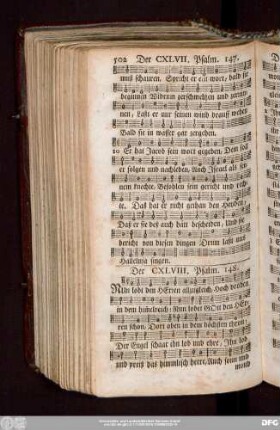 502 Der CXLVII. Psalm. 147.
muß schauren. Spricht er ein wort, bald sie
beginnen Widrum zerschmeltzen und zerrin-
nen, Läst er nur seinen wind drauff wehen
Bald sie in wasser zergehen.
10 Er hat Jacob sein wort gegeben. Dem soll
er folgen und nachleben. Auch Israel als sei-
nem knechte. Befohlen sein gericht und rech-
te. Das hat er nicht gethan den Heyden
Daß er sie des auch hätt bescheiden. Und sie
bericht von diesen dingen Drum last uns
Halleluja singen.
Der CXLVIII. Psalm. 148.
NUn lobt den HErren allzugleich, Hoch droben
in dem himelreich: Ihm lobet GOtt den HEr-
ren schon, Dort oben in dem höchsten thron:
Der Engel schaar ihn lob und ehre, Ihn lob
und preiß das himmlisch heere, Auch sonn und